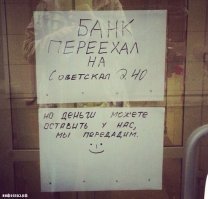 БАНК
ПЕРЕЕХАЛ
НА
Советская д.40
НО ДЕНЬГИ МОЖЕТЕ
ОСТАВИТЬ У НАС,
МЫ ПЕРЕДАДИМ.